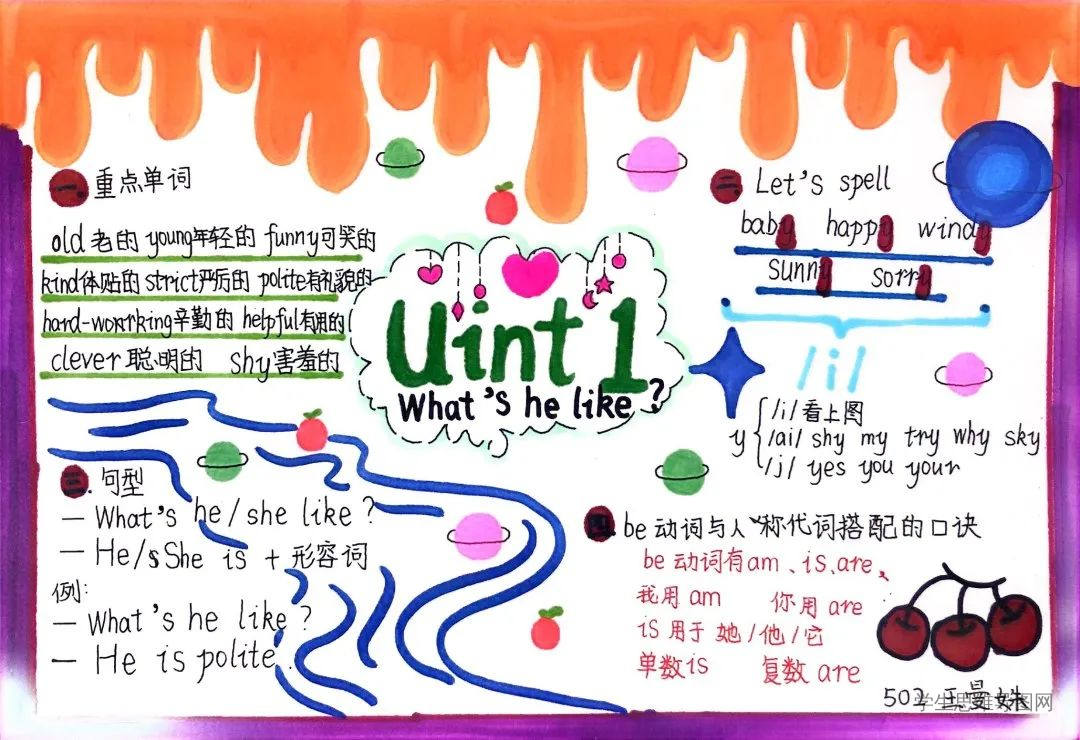 一. 重点单词
old 老的 young年轻的 funny可笑的
kind体贴的 strict严厉的 polite有礼貌的
hard-worrking辛勤的 helpful有用的
clever 聪明的 shy害羞的
Uint 1
What's he like ?
二. Let's spell
baby happy windy
sunny sorry
/i/
y
/i/ 看上图
/ai/ shy my try why sky
/j/ yes you your
三. 句型
— What's he/she like ?
— He/sShe is + 形容词
例:
— What's he like ?
— He is polite.
四. be 动词与人称代词搭配的口诀
be 动词有am、is、are、
我用 am 你用 are
is 用于 她/他/它
单数is 复数 are
502 王曼姝
学生思维导图网